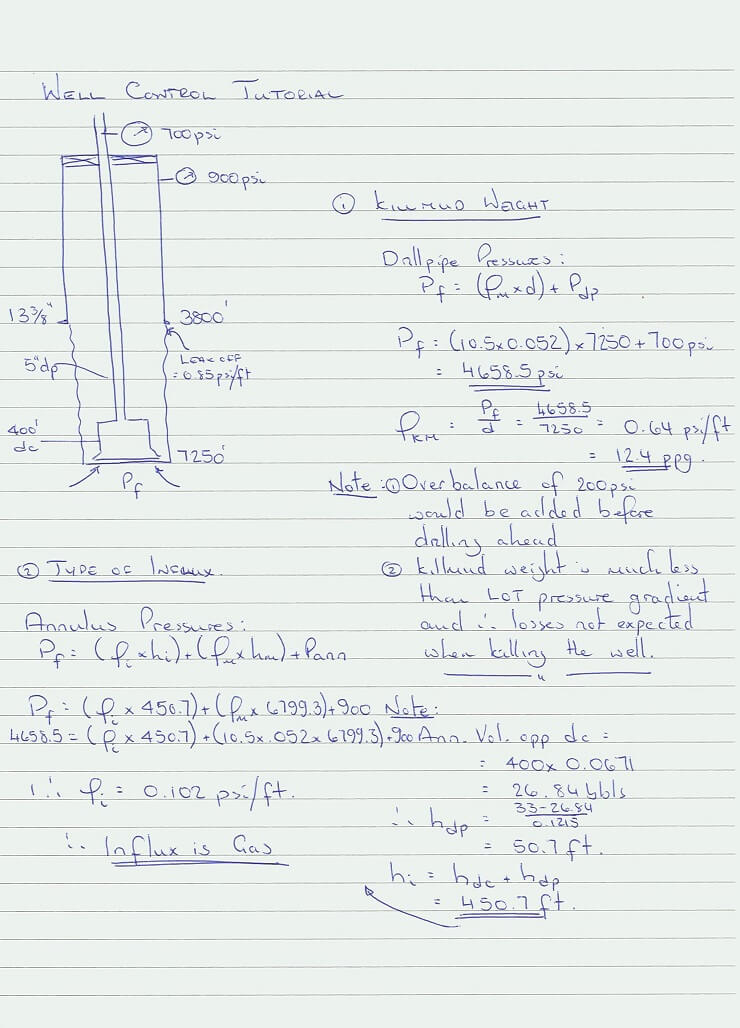 WELL CONTROL TUTORIAL
700psi
900psi
① KILLMUD WEIGHT
Drillpipe Pressures:
Pf = (ρm x d) + Pdp
13 3/8"
3800'
LEAK OFF
= 0.85psi/ft
5"dp
Pf = (10.5x0.052) x 7250 + 700psi
= 4658.5 psi
400'
dc
7250'
Pf
ρKM = Pf/d = 4658.5/7250 = 0.64 psi/ft
= 12.4 ppg.
Note: ① Overbalance of 200psi
would be added before
drilling ahead
② killmud weight is much less
than LOT pressure gradient
and ∴ losses not expected
when killing the well.
"
② TYPE OF INFLUX.
Annulus Pressures:
Pf = (ρi x hi) + (ρm x hm) + Pann
Pf = (ρi x 450.7) + (ρm x 6799.3) + 900
4658.5 = (ρi x 450.7) + (10.5 x .052 x 6799.3) + 900
∴ ρi = 0.102 psi/ft.
∴ Influx is Gas
Note:
Ann. Vol. opp dc =
= 400x 0.0671
= 26.84 bbls
∴ hdp = 33-26.84/0.1215
= 50.7 ft.
hi = hdc + hdp
= 450.7 ft.